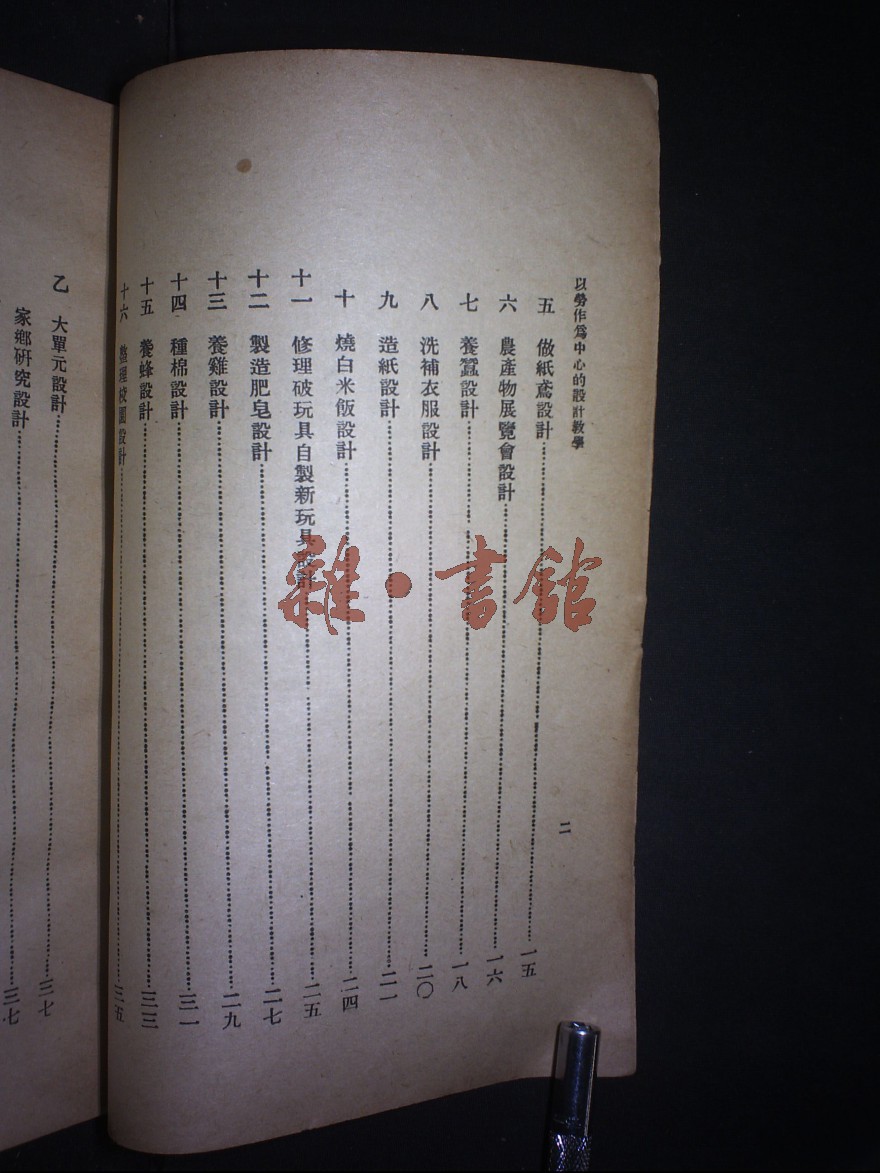 以勞作爲中心的設計教學
五 做紙鳶設計……一五
六 農產物展覽會設計……一六
七 養蠶設計……一八
八 洗補衣服設計……二〇
九 造紙設計……二一
十 燒白米飯設計……二四
十一 修理破玩具自製新玩具設計……二五
十二 製造肥皂設計……二七
十三 養雞設計……二九
十四 種棉設計……三一
十五 養蜂設計……三三
十六 整理校園設計……三五
二
乙 大單元設計……三七
家鄉研究設計……三七
雜·書館